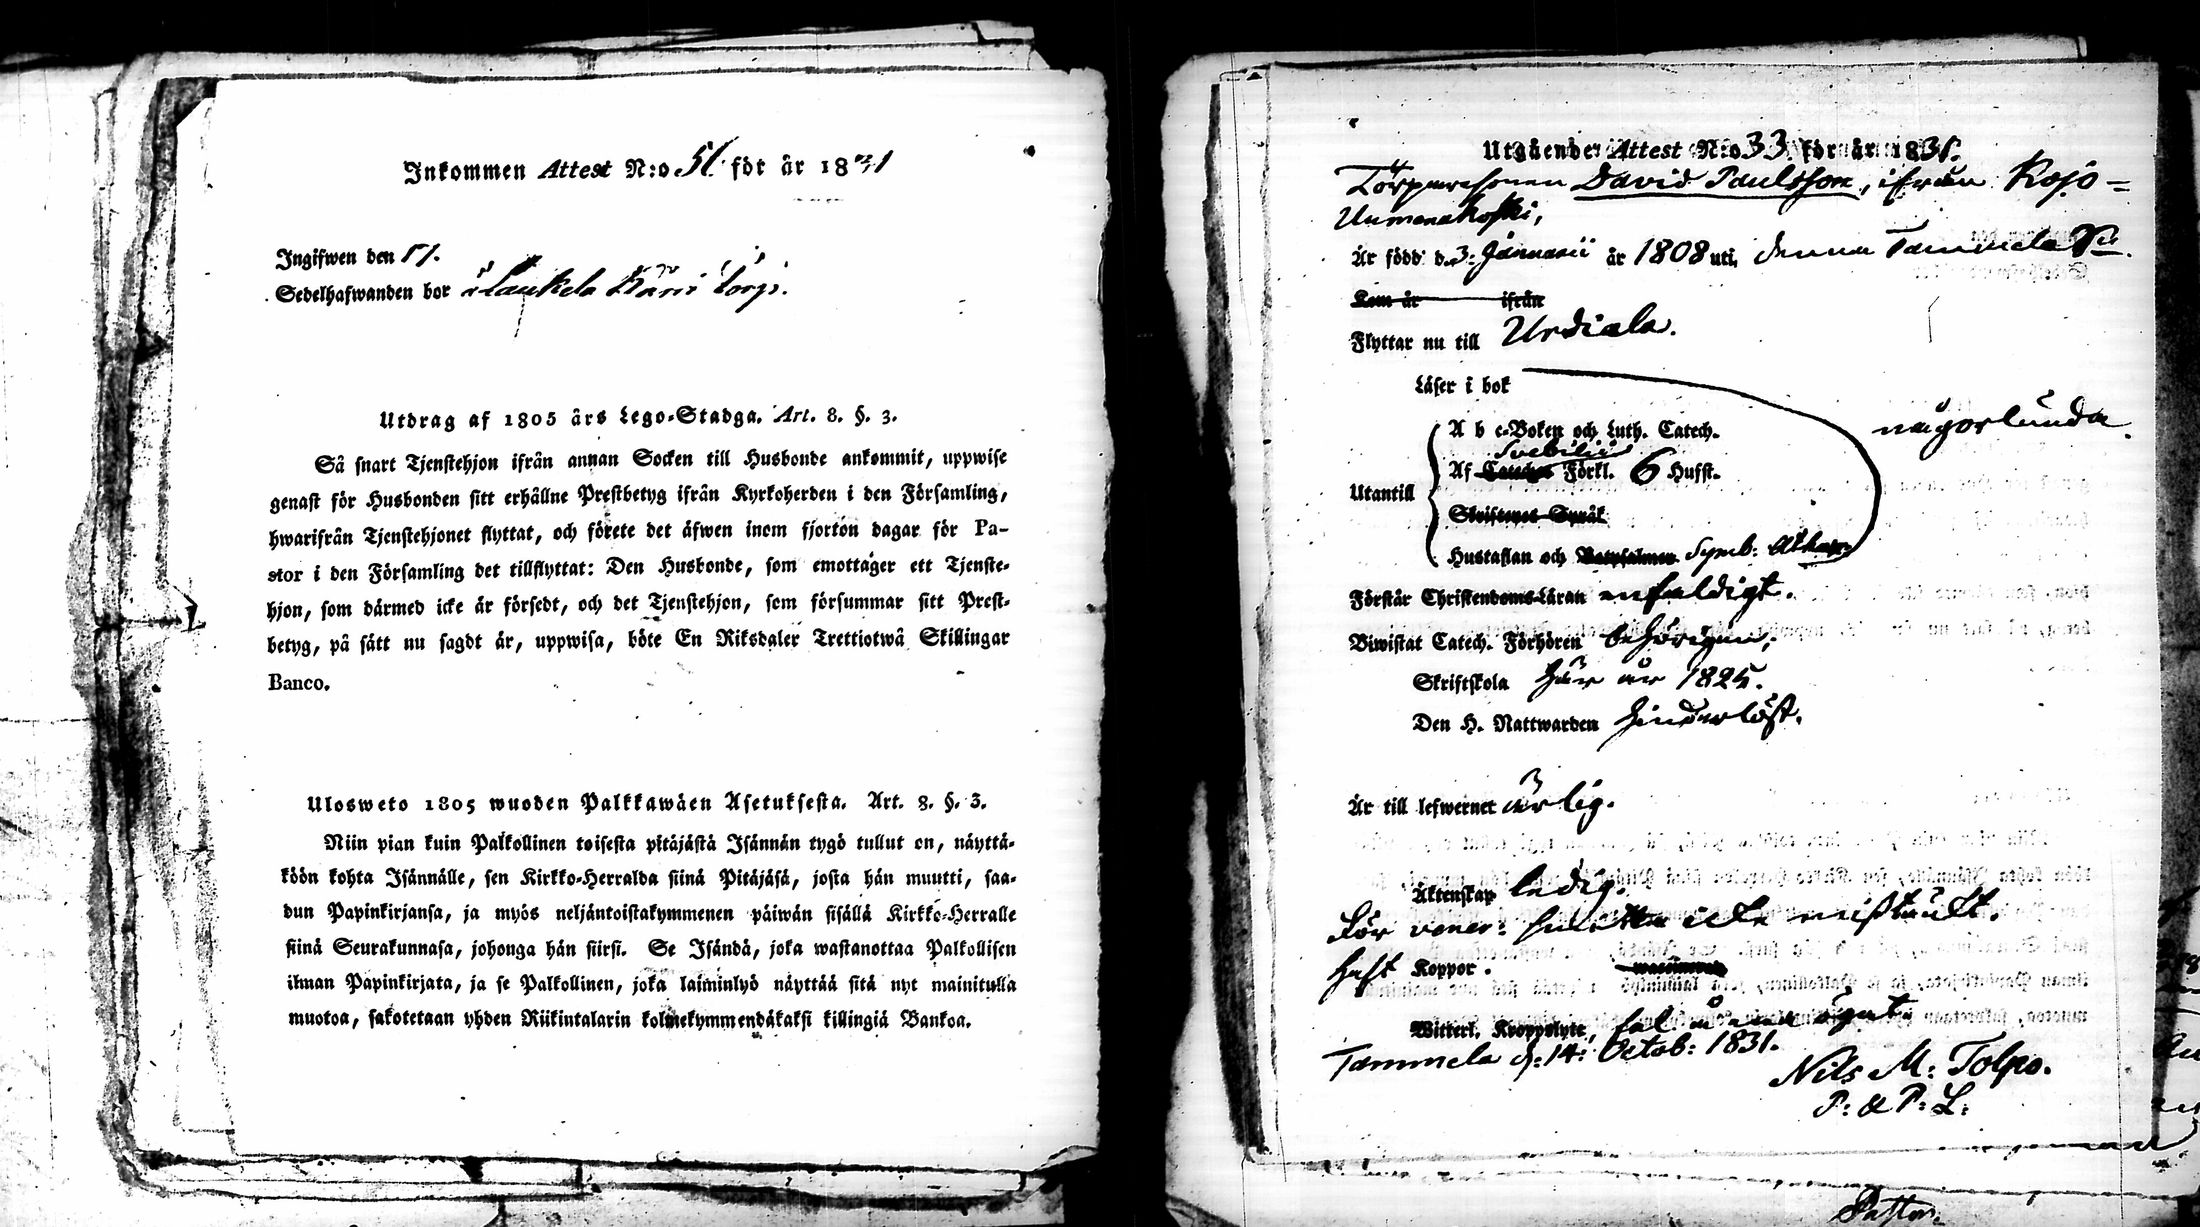 Inkommen Attest N:o 51. för år 1831
Ingifwen den 17.
Sedelhafwanden bor i Laukela Käni torp.
Utdrag af 1805 års Lego-Stadga. Art. 8. §. 3.
Så snart Tjenstehjon ifrån annan Socken till Husbonde ankommit, uppwise
genast för Husbonden sitt erhållne Prestbetyg ifrån Kyrkoherden i den Församling,
hwarifrån Tjenstehjonet flyttat, och förete det äfwen inom fjorton dagar för Pa-
stor i den Församling det tillflyttat: Den Husbonde, som emottager ett Tjenste-
hjon, som därmed icke är försedt, och det Tjenstehjon, som försummar sitt Prest-
betyg, på sätt nu sagdt är, uppwisa, böte En Riksdaler Trettiotwå Skillingar
Banco.
Ulosweto 1805 wuoden Palkkawäen Asetuksesta. Art. 8. §. 3.
Niin pian kuin Palkollinen toisesta pitäjästä Isännän tygö tullut on, näyttä-
köön kohta Isännälle, sen Kirkko-Herralda siinä Pitäjäsä, josta hän muutti, saa-
dun Papinkirjansa, ja myös neljäntoistakymmenen päiwän sisällä Kirkko-Herralle
siinä Seurakunnasa, johonga hän siirsi. Se Isändä, joka wastanottaa Palkollisen
ilman Papinkirjata, ja se Palkollinen, joka laiminlyö näyttää sitä nyt mainitulla
muotoa, sakotetaan yhden Riikintalarin kolmekymmendäkaksi killingiä Bankoa.
Utgående Attest N:o 33 för år 1831.
Torparesonen David Paulsson, ifrån Kojo-
Uumenakoski,
Är född d. 3: Januarii år 1808 uti, denna Tammela Sn.
Kom år ifrån
Flyttar nu till Urdiala.
Läser i bok
A b c-Boken och Luth. Catech. någorlunda.
Svebilii
Utantill Af Catechis Förkl. 6 Hufst.
Skriftenes Språk
Hustaflan och Botpsalmen Symb: Athan:
Förstår Christendoms-Läran enfaldigt.
Biwistat Catech. Förhören behörigen;
Skriftskola här år 1825.
Den H. Nattwarden hinderlöst.
Är till lefwernet ärlig.
Äktenskap ledig.
För vener: smitta icke misstänkt.
Haft Koppor.
Witterl. Kroppslyte,
Tammela d: 14: Octob: 1831.
Nils M: Tolpo.
P: & P: L:
Pastor.